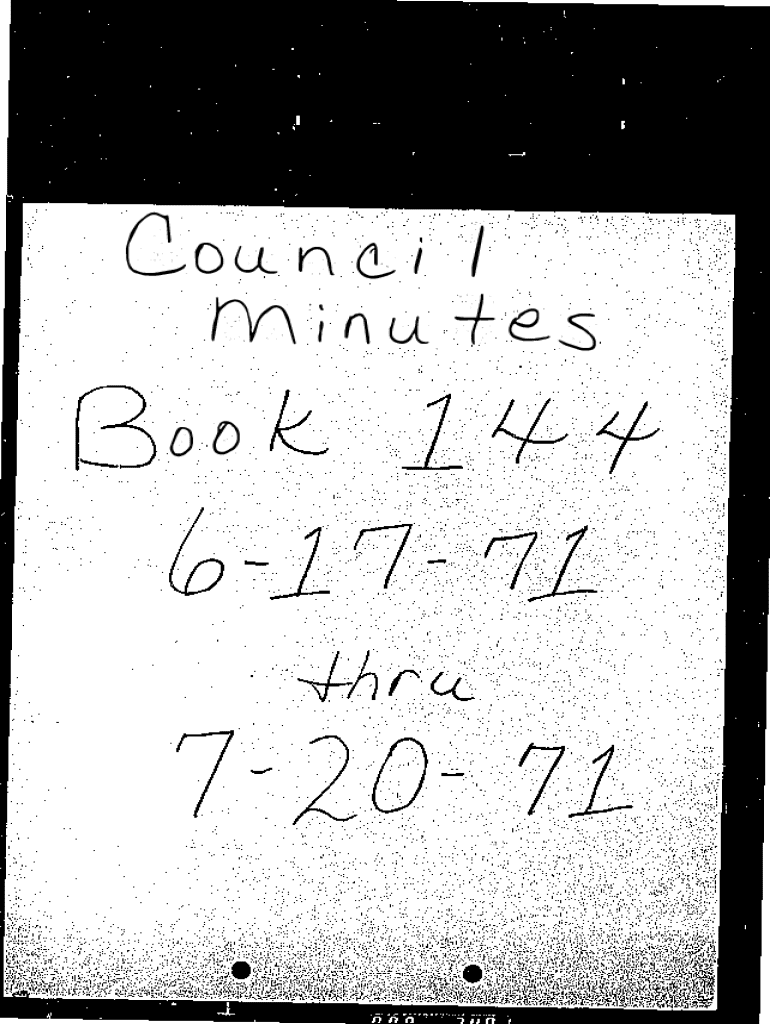 Council
Minutes
Book 144
6-17-71
thru
7-20-71